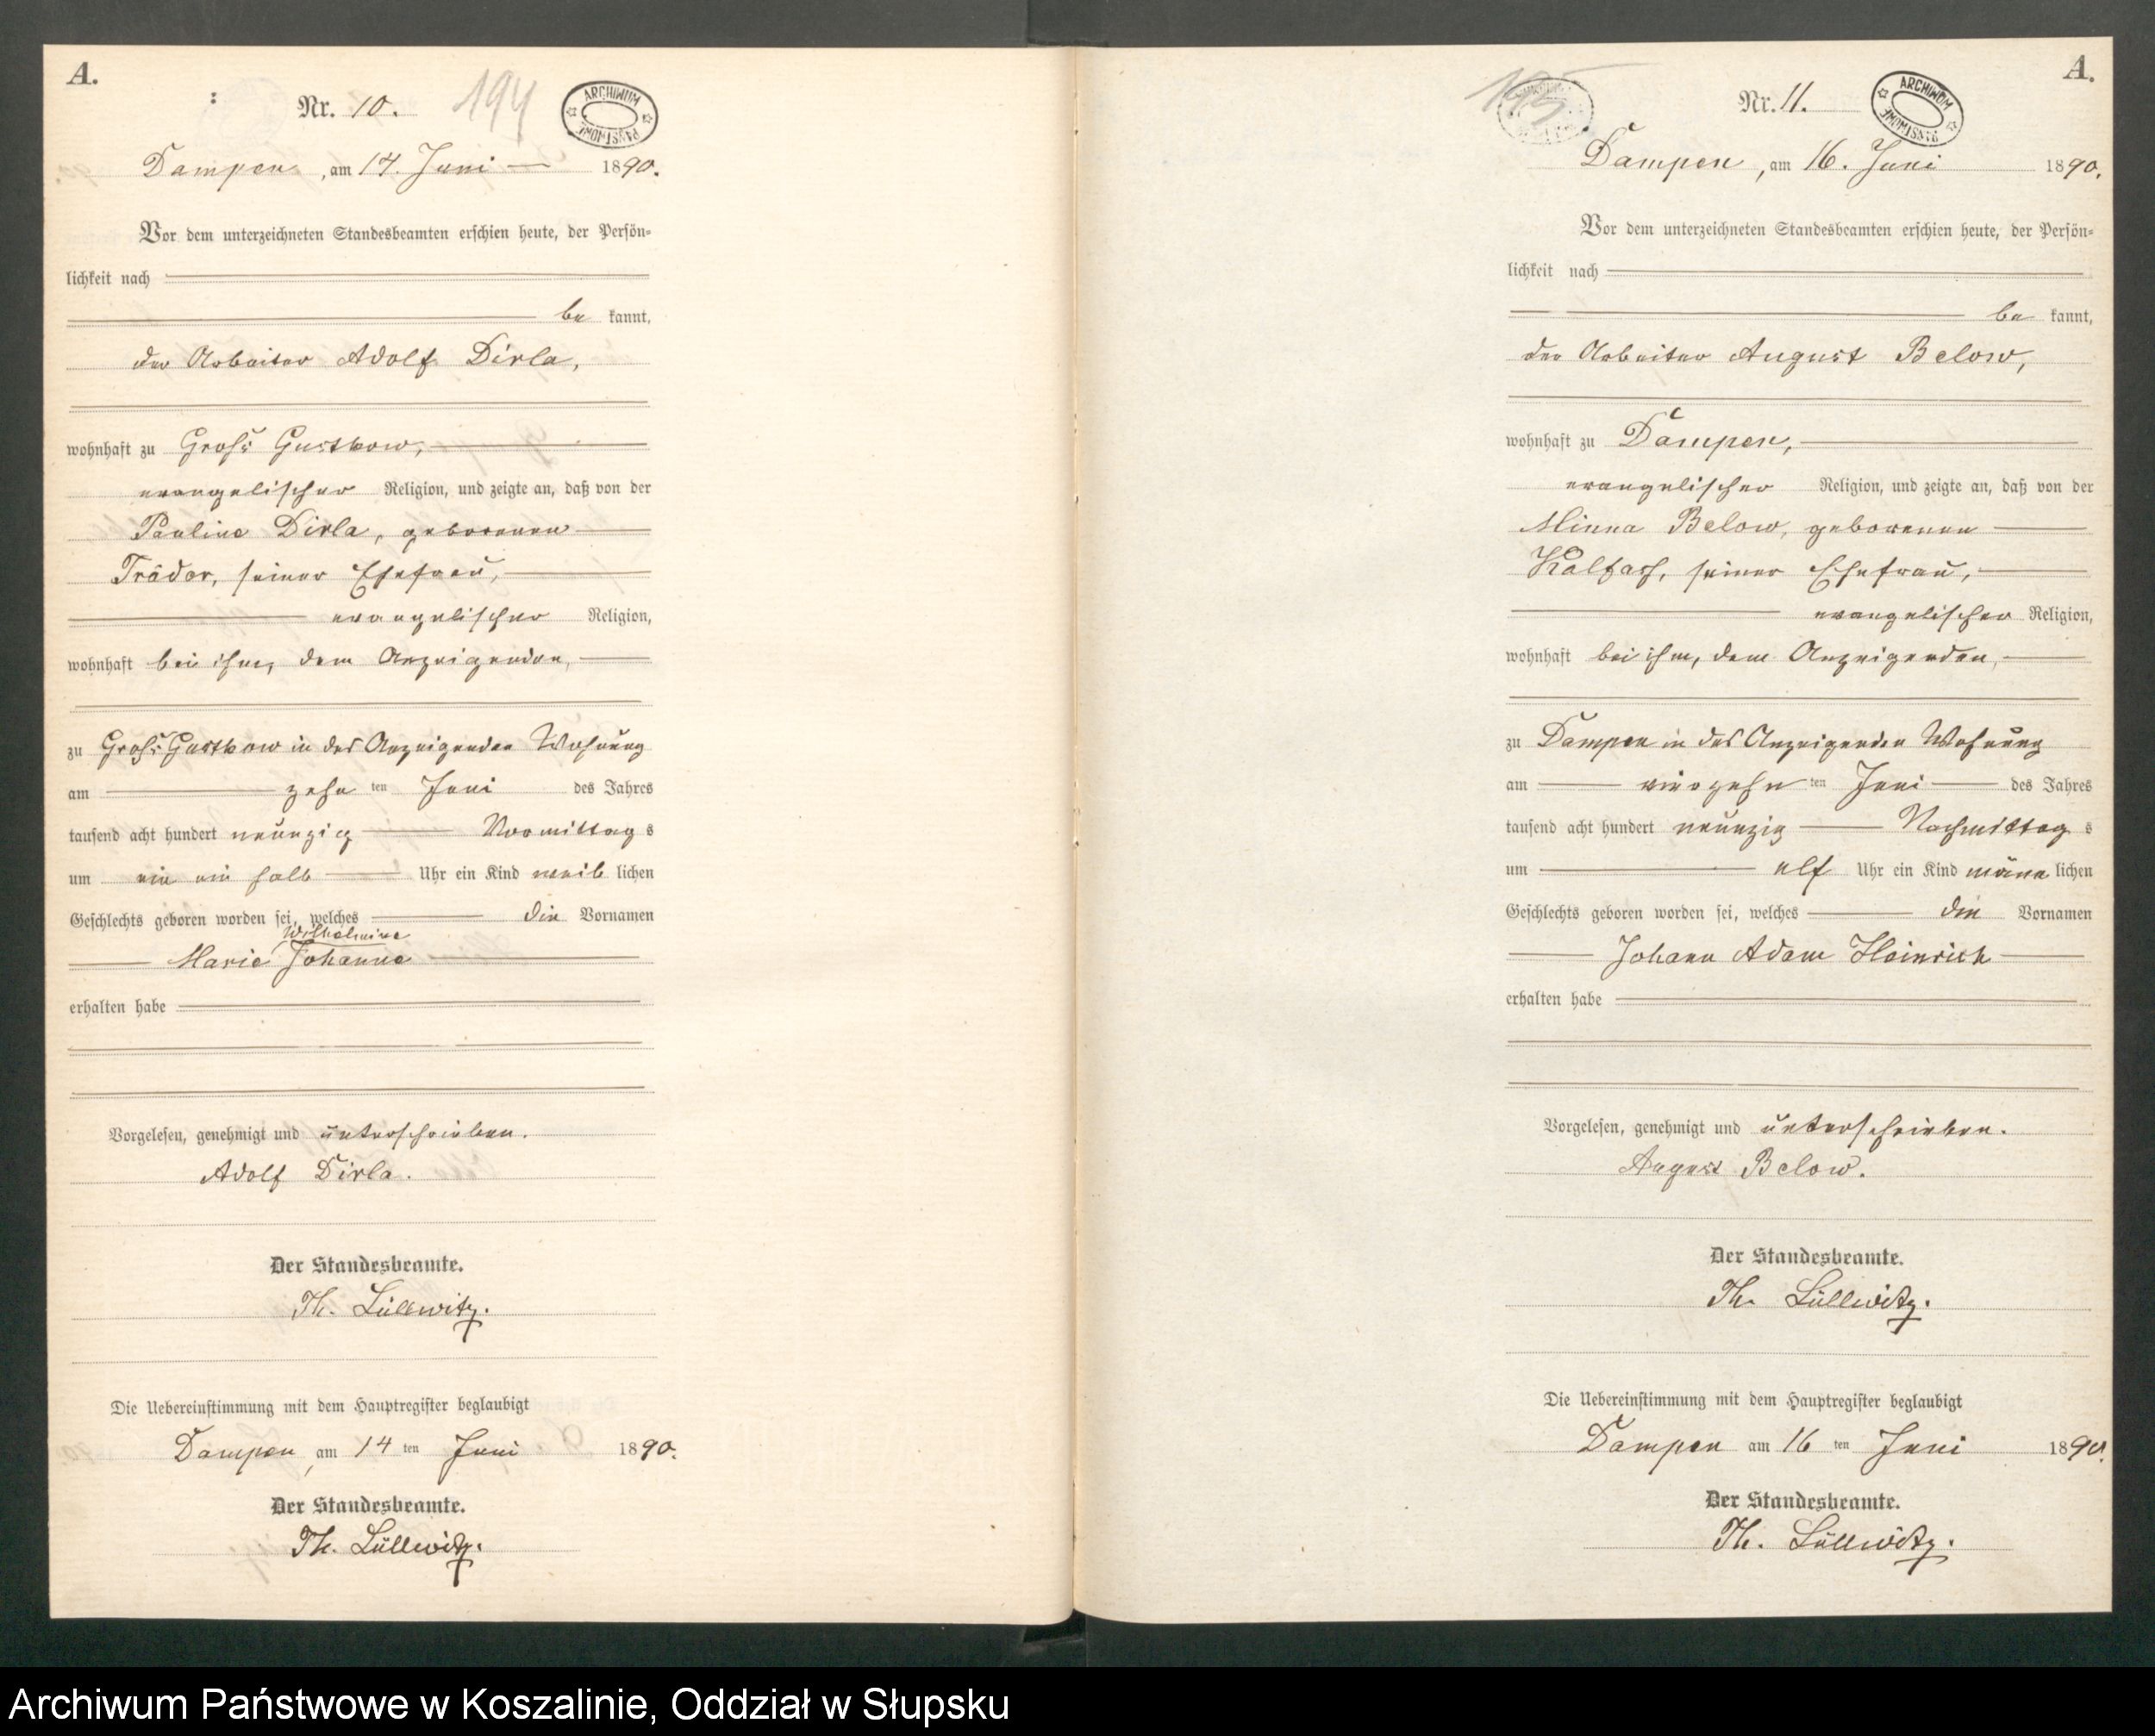 A.
Nr. 10.
194
ARCHIWUM PAŃSTWOWE
Dampen, am 14. Juni 1890.
Vor dem unterzeichneten Standesbeamten erschien heute, der Persön-
lichkeit nach
be kannt,
der Arbeiter Adolf Dirla,
wohnhaft zu Groß Gustkow,
evangelischer Religion, und zeigte an, daß von der
Pauline Dirla, geborenen
Träder, seiner Ehefrau,
evangelischer Religion,
wohnhaft bei ihm, dem Anzeigenden,
zu Groß Gustkow in des Anzeigenden Wohnung
am zehn ten Juni des Jahres
tausend acht hundert neunzig Vormittag s
um ein ein halb Uhr ein Kind weib lichen
Geschlechts geboren worden sei, welches die Vornamen
Wilhelmine
Marie Johanne
erhalten habe
Vorgelesen, genehmigt und unterschrieben.
Adolf Dirla.
Der Standesbeamte.
Th. Lüllwitz.
Die Uebereinstimmung mit dem Hauptregister beglaubigt
Dampen, am 14 ten Juni 1890.
Der Standesbeamte.
Th. Lüllwitz.
A.
195
Nr. 11.
ARCHIWUM PAŃSTWOWE
Dampen, am 16. Juni 1890.
Vor dem unterzeichneten Standesbeamten erschien heute, der Persön-
lichkeit nach
be kannt,
der Arbeiter August Below,
wohnhaft zu Dampen,
evangelischer Religion, und zeigte an, daß von der
Minna Below, geborenen
Kalfaß, seiner Ehefrau,
evangelischer Religion,
wohnhaft bei ihm, dem Anzeigenden,
zu Dampen in des Anzeigenden Wohnung
am vierzehn ten Juni des Jahres
tausend acht hundert neunzig Nachmittag s
um elf Uhr ein Kind männ lichen
Geschlechts geboren worden sei, welches die Vornamen
Johann Adam Heinrich
erhalten habe
Vorgelesen, genehmigt und unterschrieben.
August Below.
Der Standesbeamte.
Th. Lüllwitz.
Die Uebereinstimmung mit dem Hauptregister beglaubigt
Dampen am 16 ten Juni 1890.
Der Standesbeamte.
Th. Lüllwitz.
Archiwum Państwowe w Koszalinie, Oddział w Słupsku